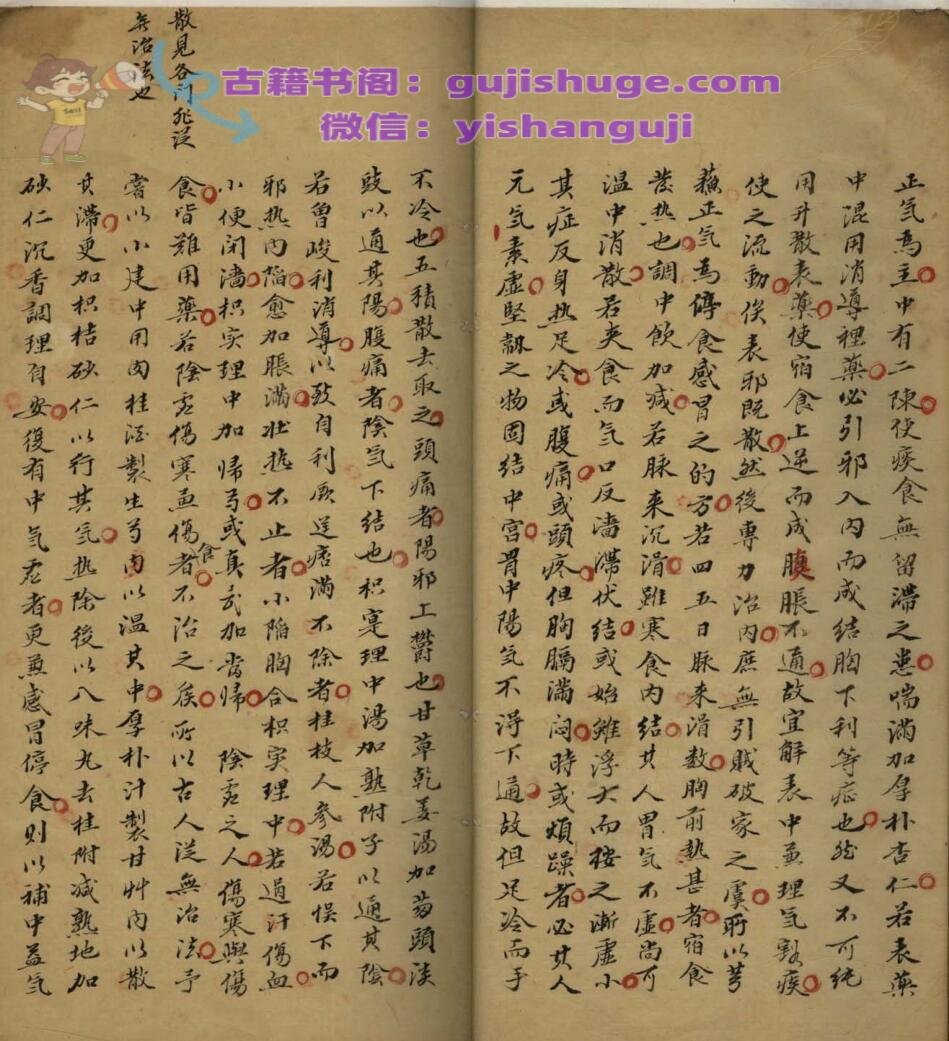 古籍书阁：gujishuge.com
微信：yishanguji
正气為主中有二陳使痰食無留滞之患喘滿加厚朴杏仁若表藥
中混用消導裡藥必引邪入内而成結胸下利等症也然又不可純
用升散表藥使宿食上逆而成腹脹不通故宜解表中兼理气豁痰
使之流動俟表邪既散然後專力治内庶無引賊破家之虞所以芎
蘓正气為停食感冒之的方若四五日脉来滑数胸前熱甚者宿食
發热也調中飲加減若脉来沉滑雖寒食内結其人胃气不虚尚可
温中消散若夹食而气口反濇滞伏結或始雖浮大而按之漸虚小
其症反身热足冷或腹痛或頭疼但胸膈滿闷時或煩躁者必其人
元气素虚堅韌之物固结中宫胃中陽气不淂下通故但足冷而手
不冷也五積散去
取之頭痛者陽邪上鬱也甘草乾姜湯加葱頭淡
豉以通其陽腹痛者陰气下结也枳寔理中湯加熟附子以通其陰
若曾峻利消導以致自利厥逆痞滿不除者桂枝人參湯若悮下而
邪热内陷愈加脹滿壮热不止者小陷胸合枳实理中若過汗傷血
小便闭濇枳实理中加帰芍或真武加當帰 陰虚之人傷寒與傷
食皆難用藥若陰虚傷寒兼傷食者不治之候所以古人從無治法予
散見各门非從
無治法也
嘗以小建中用肉桂酒製生芍内以温其中厚朴汁製甘艸内以散
其滞更加枳桔砂仁以行其气热除後以八味丸去桂附减熟地加
砂仁沉香調理自安復有中气虚者更兼感冒停食则以補中益气